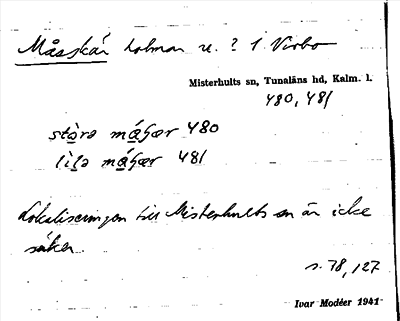 Måsskär holmar u. ? 1 Virbo
Misterhults sn, Tunaläns hd, Kalm. l.
480, 481
stòrə máʃær 480
lìlə máʃær 481
Lokaliseringen till Misterhults sn är icke
säker.
s. 78, 127
Ivar Modéer 1941